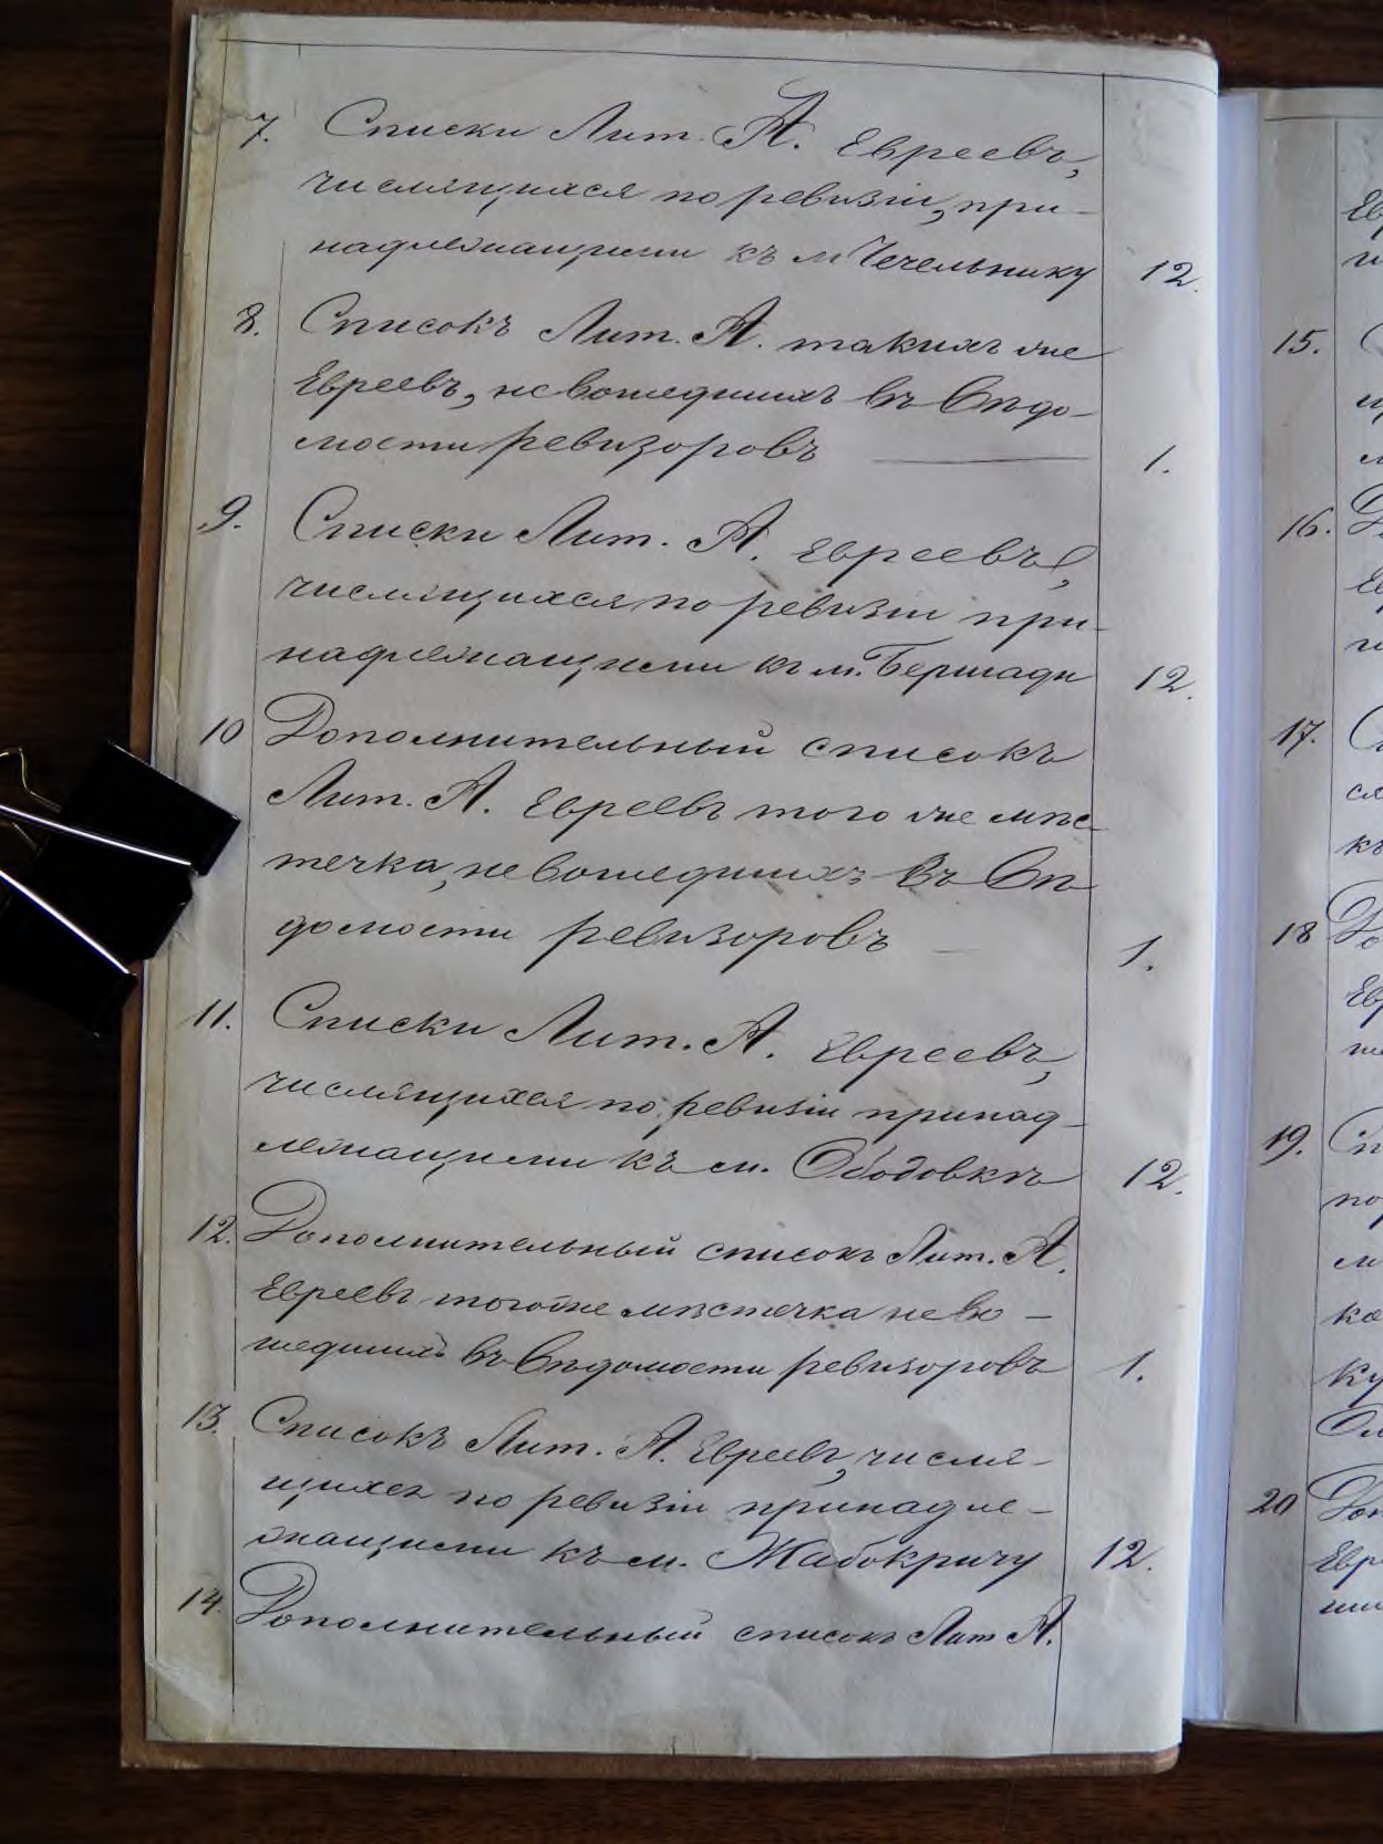 7. Списки Лит. А. Евреевъ,
числящихся по ревизіи, при-
надлежащими къ м. Чечельнику 12.
8. Списокъ Лит. А. такихъ же
Евреевъ, не вошедшихъ въ Вѣдо-
мости ревизоровъ — 1.
9. Списки Лит. А. Евреевъ,
числящихся по ревизіи при-
надлежащими къ м. Бершади 12.
10 Дополнительный списокъ
Лит. А. Евреевъ того же мѣс-
течка, не вошедшихъ въ Вѣ-
домости ревизоровъ — 1.
11. Списки Лит. А. Евреевъ,
числящихся по ревизіи принад-
лежащими къ м. Ободовкѣ 12.
12. Дополнительный списокъ Лит. А.
Евреевъ того же мѣстечка не во-
шедшихъ въ Вѣдомости ревизоровъ 1.
13. Списокъ Лит. А. Евреевъ, числя-
щихся по ревизіи принадле-
жащими къ м. Жабокричу 12.
14. Дополнительный списокъ Лит А.
15.
16.
17.
къ
18
19.
20